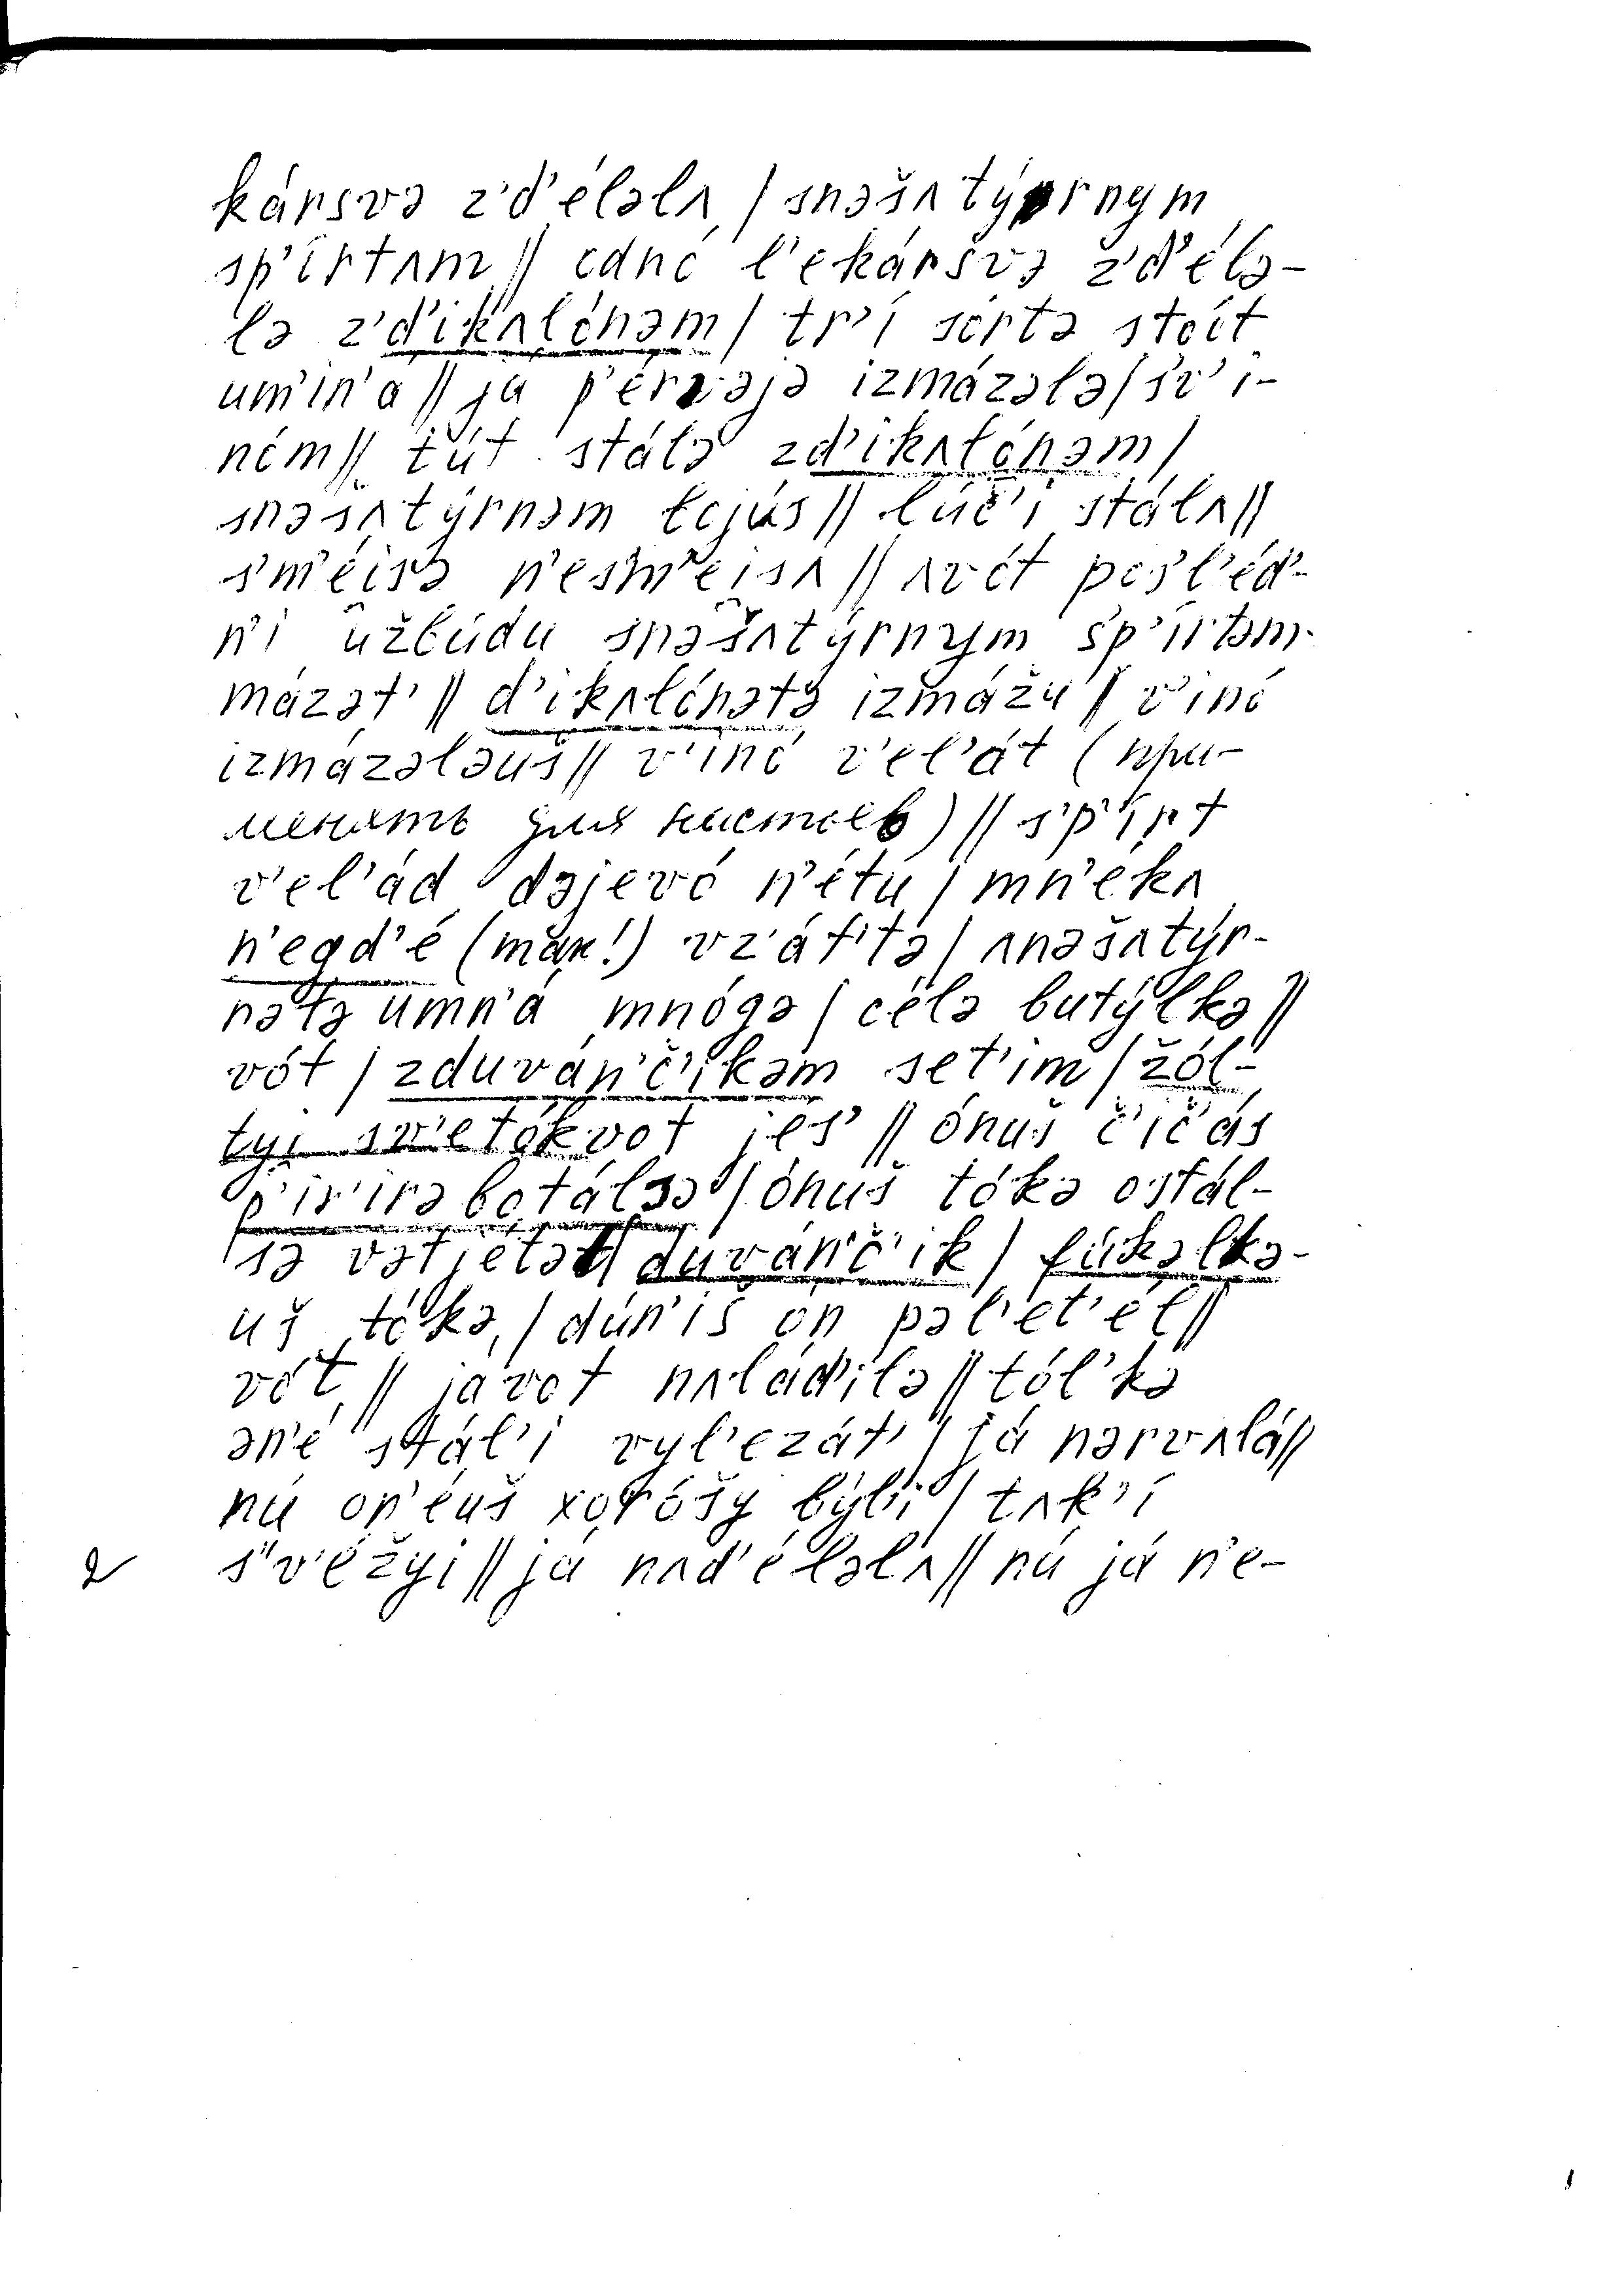 kársvə z’d’éləlʌ / snəšʌtýrnym
sp’írtʌm // odnó l’ekáršvə z’d’élə-
lə z’d’ikʌlónəm / tr’í sórtə stoít
um’in’a // ja p’érvəjə izmázələ / s’v’i-
nóm // tút stálə zd’ikʌlónəm /
snəšʌtýrnəm bojús // lúč’i stálʌ //
s’m’éisə n’esm’eisʌ // ʌvót posl’éd’-
n’i ûžbúdu snəšʌtýrnym sp’írtəm
mázət’ // d’ikʌlónətə izmážu // v’inó
izmázələuš // v’inó v’el’át (при-
менять для настоев) // sp’írt
v’el’ád dəjevó n’étu / mn’ékʌ
n’egd’é (так!) vz’át’tə / ʌnəšʌtýr-
nətə umn’á mnógə / célə butýlkə //
vót / zduván’č’ikəm set’im / žól-
tyi sv’etókvot jes’ // ónuš č’ič’ás
p’ir’irəbotálsə / ónuš tókə ostál-
sə vət jétət / duván’č’ik / fúkəlkə-
uš tókə / dún’iš on pəl’et’él //
vót // jávot nʌlád’ilə // tól’kə
ən’é stál’i vyl’ezát’ / já nərvʌlá //
nú on’éuš xoróšy býl’i / tʌk’í
s’v’éžyi // já nʌd’éləlʌ // nú já n’e-